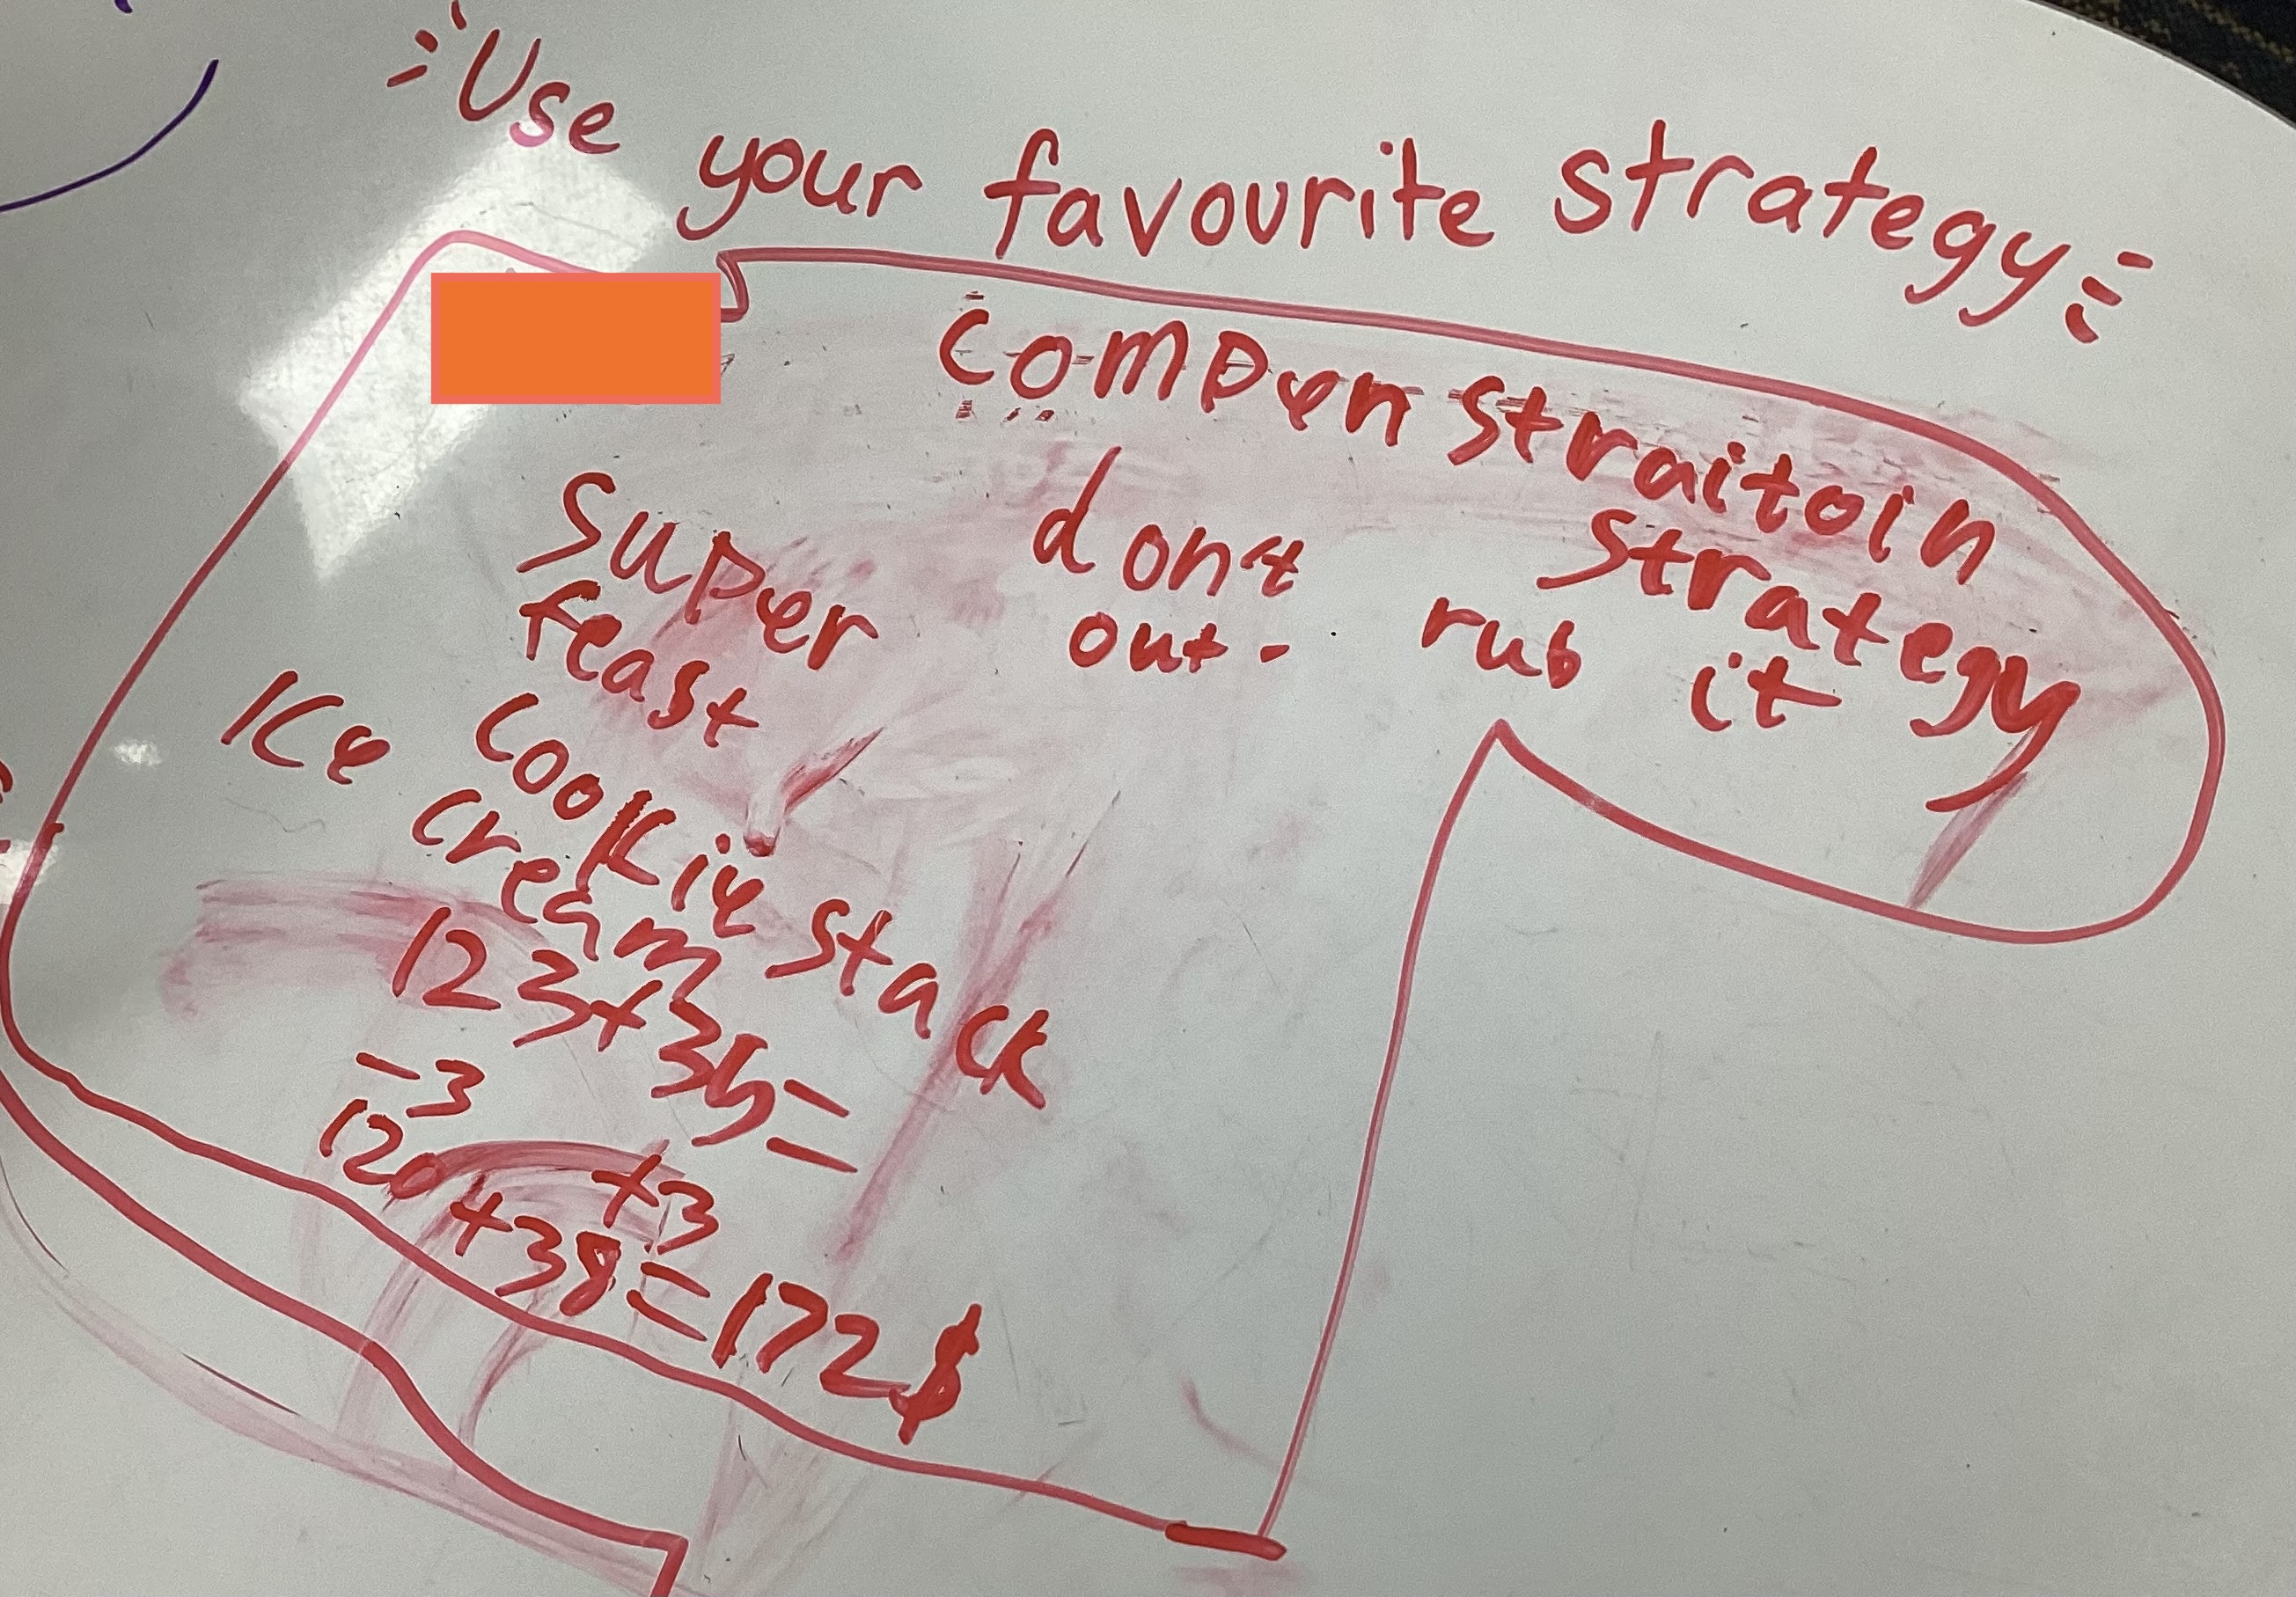 Use your favourite strategy
compenstraitoin
strategy
dont rub it
out.
super
feast
cookie stack
Ice cream
123+35=
-3 +3
120+38=172$